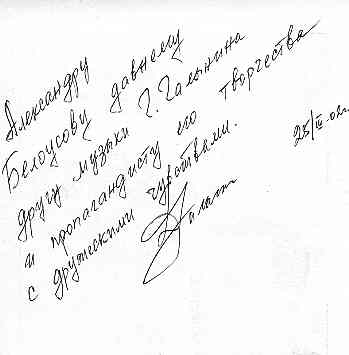 Александру
Белоусову давнему
другу музыки Г. Галынина
и пропагандисту его творчества
с дружескими чувствами.
25/III-02г.